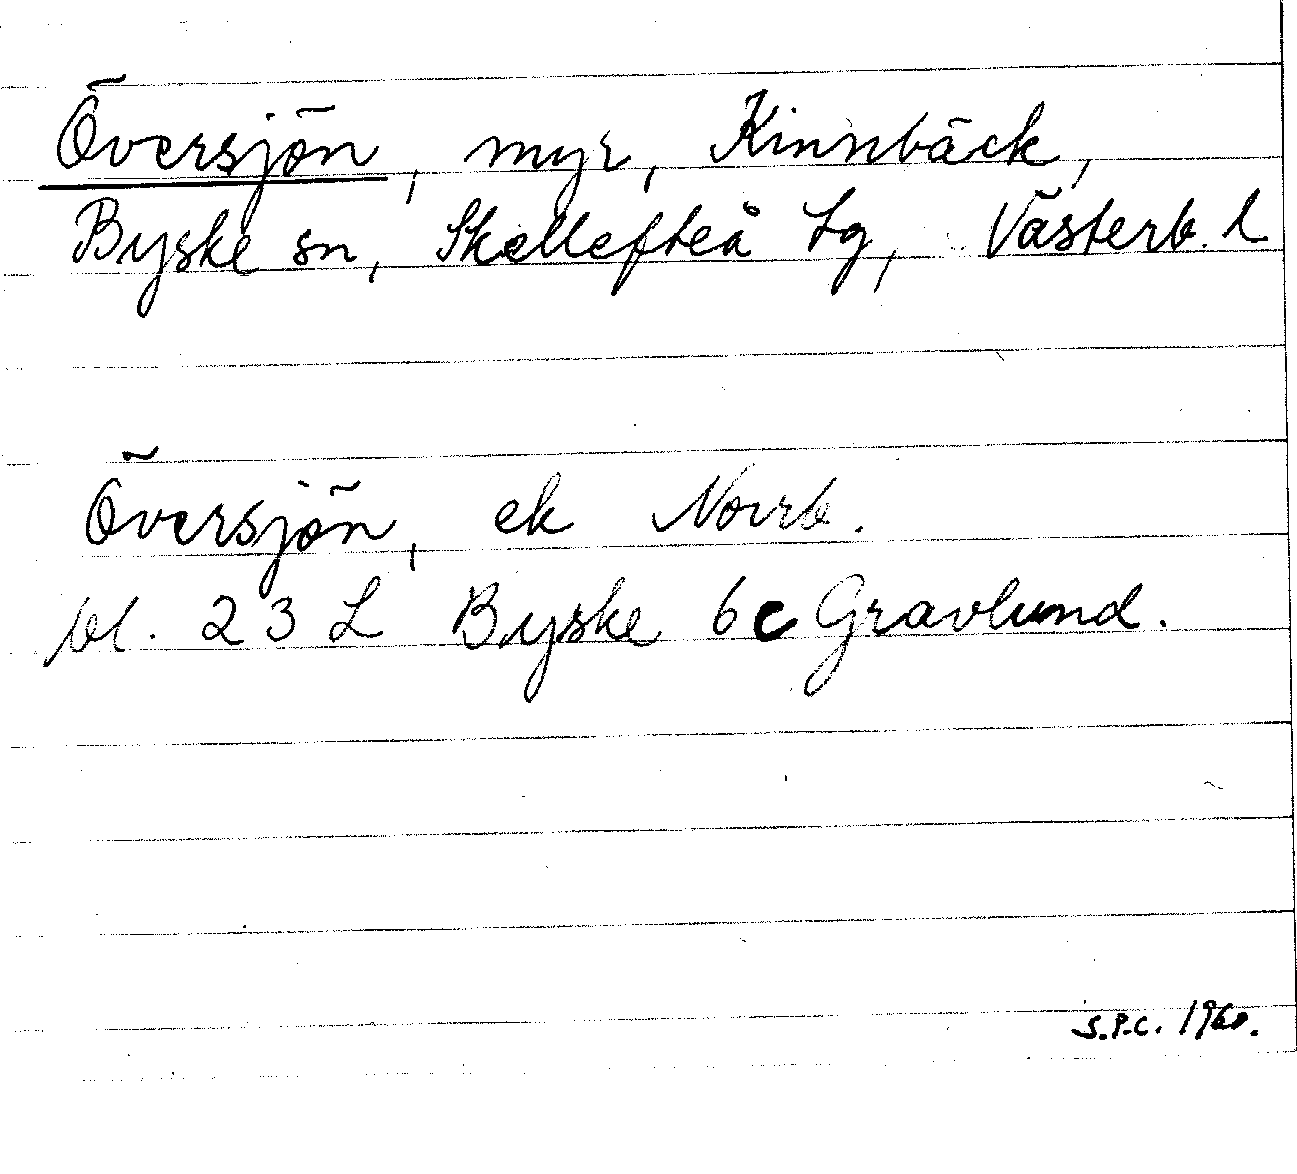 Översjön, myr, Kinnbäck,
Byske sn, Skellefteå tg, Västerb. l
Översjön, ek Norrb.
bl. 23 L Byske 6c Gravlund.
S.P.C. 1960.